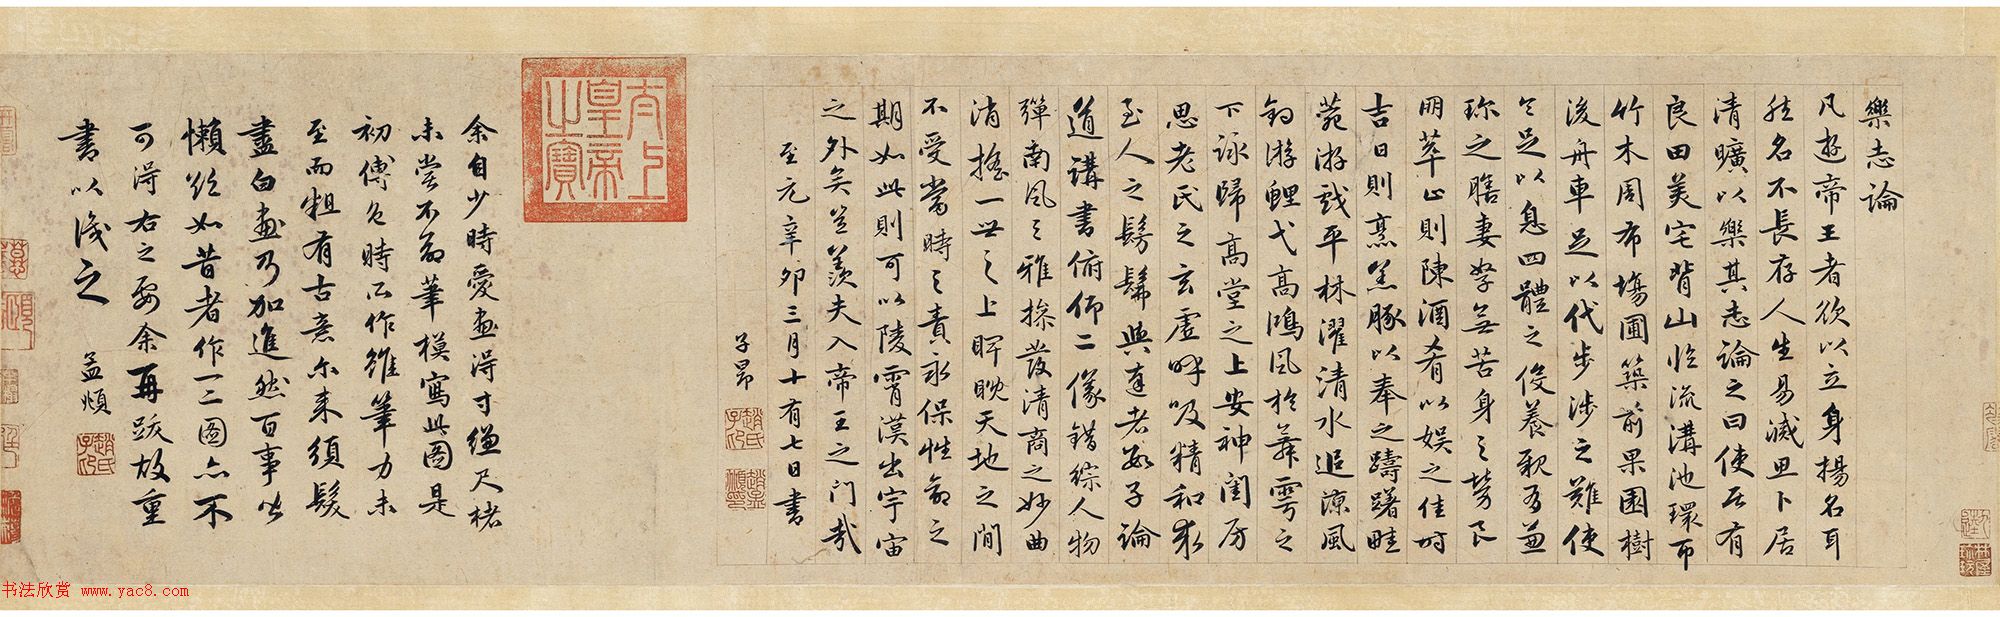 樂志論
凡遊帝王者欲以立身揚名耳
然名不長存人生易滅思卜居
清曠以樂其志論之曰使居有
良田美宅背山臨流溝池環帀
竹木周布場圃築前果園樹
後舟車足以代步涉之難使
令足以息四體之役養親有兼
珍之膳妻孥無苦身之勞良
朋萃止則陳酒肴以娛之佳時
吉日則烹羔豚以奉之躊躇畦
菀游戲平林濯清水追涼風
釣游鯉弋高鴻風於舞雩之
下詠歸高堂之上安神閨房
思老氏之玄虛呼吸精和求
至人之髣髴與達者數子論
道講書俯仰二儀錯綜人物
彈南風之雅操發清商之妙曲
消搖一世之上睥睨天地之間
不受當時之責永保性命之
期如此則可以陵霄漢出宇宙
之外矣豈羨夫入帝王之門哉
至元辛卯三月十有七日書
子昂
趙氏子印
趙孟頫印
太上皇帝之寶
余自少時愛畫得寸縑尺楮
未嘗不命筆模寫此圖是
初傅色時所作雖筆力未
至而粗有古意尔来須髮
盡白畫乃加進然百事皆
懶欲如昔者作一二圖亦不
可得右之要余再跋故重
書以識之
孟頫
趙氏子印
书法欣赏 www.yac8.com